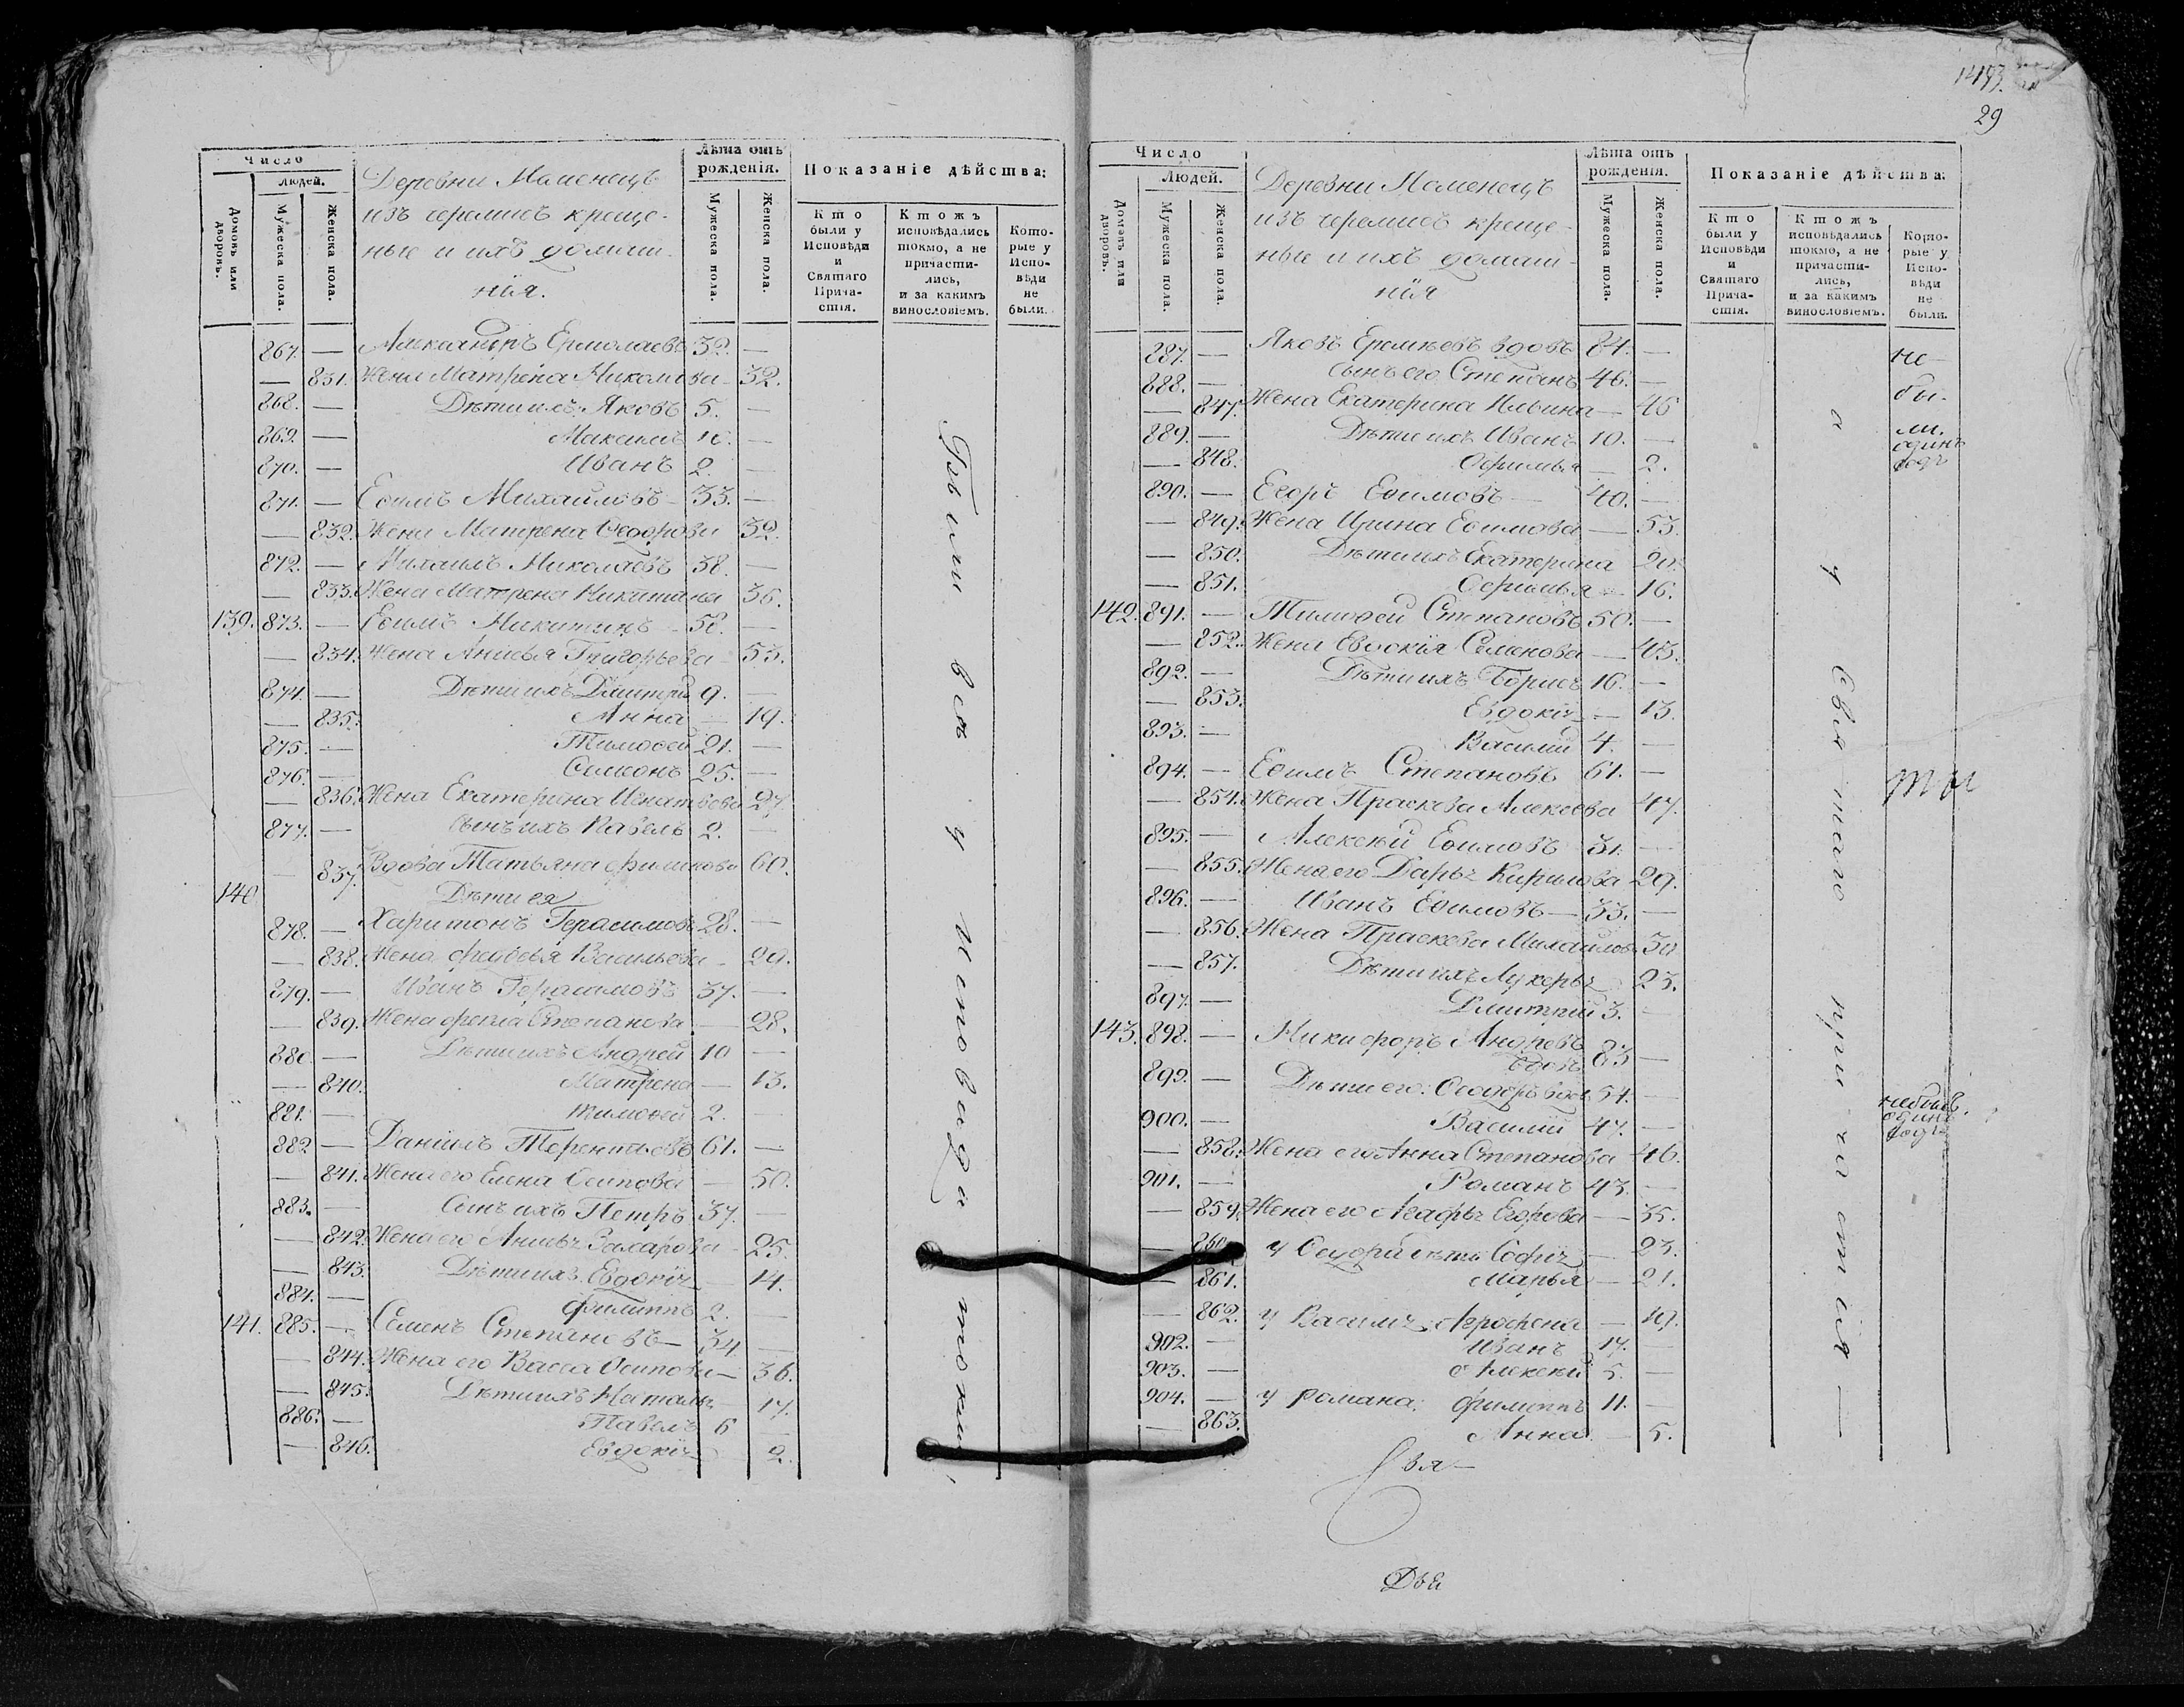 Число
Людей.
Домовъ или дворовъ.
Мужеска пола.
Женска пола.
Деревни
изъ черемисъ креще-
ные и ихъ домаш-
нія.
Лѣта отъ рожденія.
Мужеска пола.
Женска пола.
Показаніе дѣйства:
Кто были у Исповѣди и Святаго Прича-стія.
Ктожъ исповѣдались токмо, а не причасти-лись, и за какимъ винословіемъ.
Кото-рые у Испо-вѣди не были.
867. — Александръ Ермолаевъ 32. —
— 831. Жена Матрена Николаева — 32.
868. — Дѣти ихъ Яковъ 5. —
869. — Максимъ 10. —
870. — Иванъ 2. —
871. — Ефимъ Михайловъ — 33. —
— 832. Жена Матрена Ѳедорова 32.
872. — Михаилъ Николаевъ 38. —
— 833. Жена Матрена Никитина 36.
139. 873. — Ефимъ Никитинъ — 58. —
— 834. Жена Анисья Григорьева — 53.
874. — Дѣти ихъ Дмитрій 9. —
— 835. Анна — 19.
875. — Тимофей 21. —
876. — Семенъ 25. —
— 836. Жена Екатерина Игнатьева 27.
877. — Сынъ ихъ Павелъ 2. —
— 837. Вдова Татьяна 60.
140 Дѣти ея
878. — Харитонъ Герасимовъ 28. —
— 838. Жена Васильева — 29.
879. — Иванъ Герасимовъ 37. —
— 839. Жена Фекла Степанова — 28.
880. — Дѣти ихъ Андрей 10 —
— 840. Матрена — 13.
881. — Тимофей 2. —
882 — Даніилъ Терентьевъ 61. —
— 841. Жена его Елена Осипова — 50.
883. — Сынъ ихъ Петръ 37. —
— 842. Жена его Анисья Захарова — 25.
— 843. Дѣти ихъ Евдокія — 14.
884. — Филиппъ 2. —
141. 885. — Семенъ Степановъ — 34 —
— 844. Жена его Васса Осипова — 36.
— 845. Дѣти ихъ Наталья — 17.
886. — Павелъ 6 —
— 846. Евдокія 2.
Были вси у исповѣди токмо
1493.
29
Число
Людей.
Домовъ или дворовъ.
Мужеска пола.
Женска пола.
Деревни
изъ черемисъ креще-
ные и ихъ домаш-
нія
Лѣта отъ рожденія.
Мужеска пола.
Женска пола.
Показаніе дѣйства:
Кто были у Исповѣди и Святаго Прича-стія.
Ктожъ исповѣдались токмо, а не причасти-лись, и за какимъ винословіемъ.
Кото-рые у Испо-вѣди не были.
887. — Яковъ Еремѣевъ вдовъ 84. — не
888. — Сынъ его Степанъ 46. — бы-
— 847. Жена Екатерина Ильина — 46
889. — Дѣти ихъ Иванъ 10. — ли.
одинъ
— 848. Офимья — 2. годъ
890. — Егоръ Ефимовъ — 40. —
— 849. Жена Ирина Ефимова — 53.
— 850. Дѣти ихъ Екатерина 20.
— 851. Офимья — 16.
142. 891. — Тимофей Степановъ 50. —
— 852. Жена Евдокія Семенова — 43.
892. — Дѣти ихъ Борисъ 16. —
— 853. Евдокія — 13.
893. — Василій 4. —
894. — Ефимъ Степановъ 61. —
— 854. Жена Прасковья Алексеева 47.
895. — Алексѣй Ефимовъ 31. —
— 855. Жена его Дарья Кирилова 29.
896. — Иванъ Ефимовъ — 33. —
— 856. Жена Прасковья Михайлова 30
— 857. Дѣти ихъ Лукерья 23.
897. — Дмитрій 3. —
143. 898. — Никифоръ Андреевъ
вдовъ 83 —
899. — Дѣти его: Ѳеодоръ вдов 54. — небылъ.
одинъ
900. — Василій 47. — годъ
— 858. Жена его Анна Степанова 46.
901. — Романъ 43. —
— 859. Жена его Агафья Егорова — 35.
— 860. у Ѳеодора дѣти Софія — 23.
— 861. Марья — 21.
— 862. у Василья Агрофена — 19.
902. — Иванъ 17. —
903. — Алексѣй 5. —
904. — у Романа: Филиппъ 11. —
— 863. Анна — 5.
а у Святаго причастія —